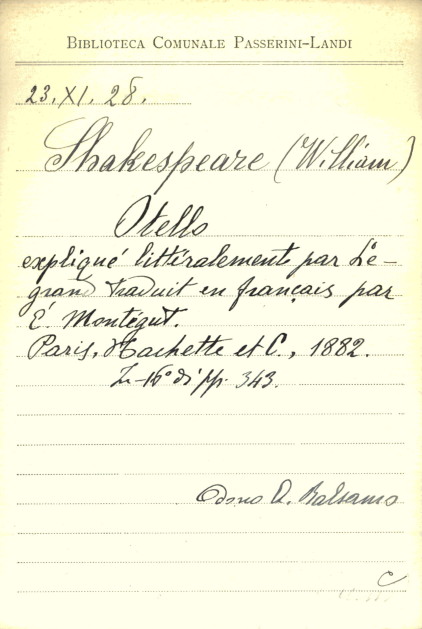 BIBLIOTECA COMUNALE PASSERINI-LANDI
23.XI.28.
Shakespeare (William)
Otello
expliqué littéralement par Le-
grand traduit en français par
É. Montégut.
Paris, Hachette et C., 1882.
In-16° di pp. 343.
Dono A. Balsamo
C